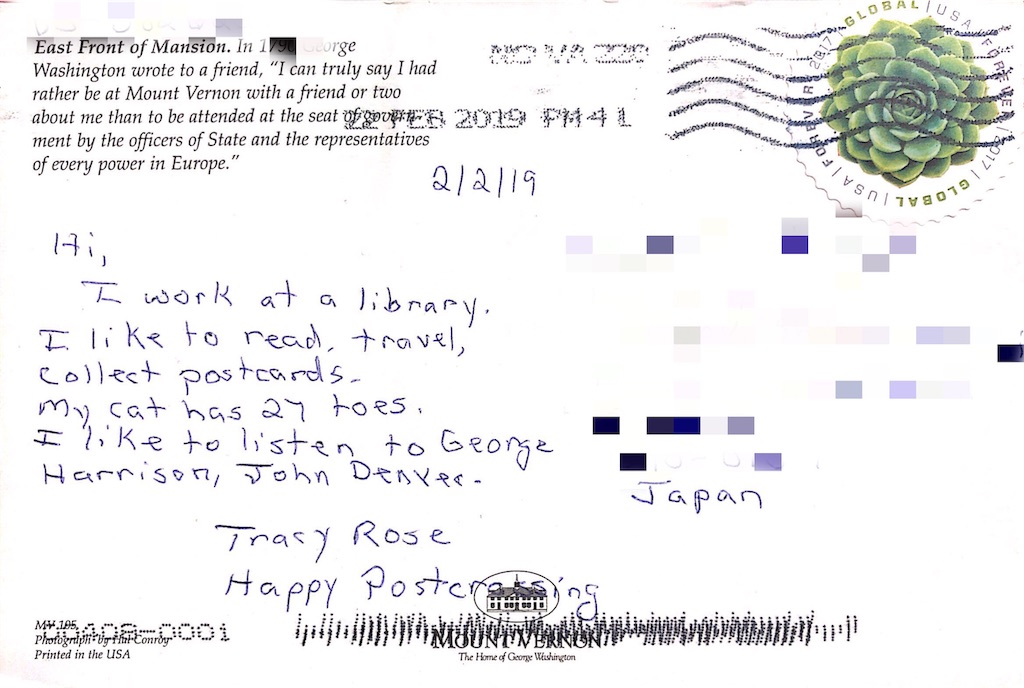 East Front of Mansion. In 1790 George
Washington wrote to a friend, “I can truly say I had
rather be at Mount Vernon with a friend or two
about me than to be attended at the seat of govern-
ment by the officers of State and the representatives
of every power in Europe.”
22 FEB 2019 PM 4 L
GLOBAL | USA | FOREVER | 2017 | GLOBAL | USA | FOREVER | 2017
2/2/19
Hi,
I work at a library.
I like to read, travel,
collect postcards.
My cat has 27 toes.
I like to listen to George
Harrison, John Denver.
Tracy Rose
Happy Postcrossing
Japan
MV 195
Photograph by Hal Conroy
Printed in the USA
MOUNT VERNON
The Home of George Washington